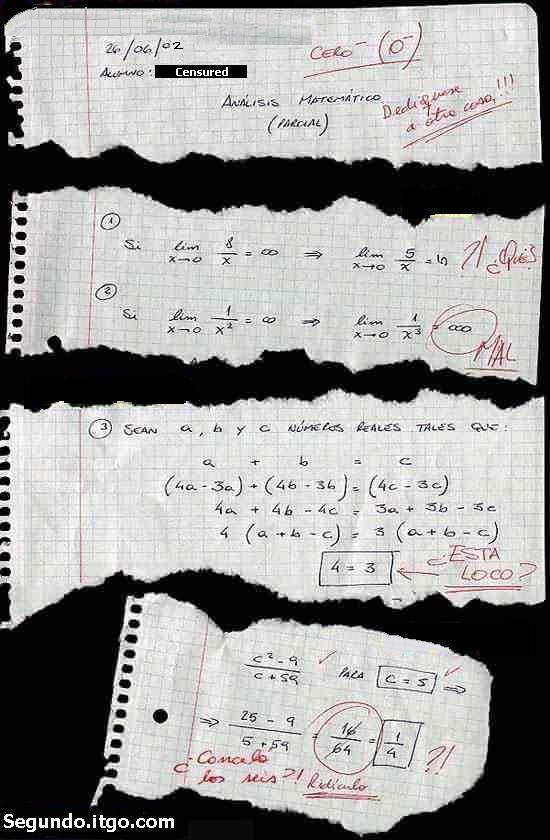 26/06/02
CERO⁻ (0⁻)
ALUMNO: Censured
ANÁLISIS MATEMÁTICO
(PARCIAL)
Dedíquese
a otra cosa!!!
①
Si lim x→0 8/x = ∞ ⇒ lim x→0 5/x = ഗ ?! ¿QUÉ?
②
Si lim x→0 1/x² = ∞ ⇒ lim x→0 1/x³ = ooo
MAL
③ SEAN a, b y c NÚMEROS REALES TALES QUE:
a + b = c
(4a-3a)+(4b-3b)=(4c-3c)
4a + 4b - 4c = 3a + 3b - 3c
4 (a+b-c) = 3 (a+b-c)
4 = 3
¿ESTA
LOCO?
c²-9/c+59 ✓ PARA c=5 ✓ ⇒
⇒ 25-9/5+59 = 16/64 = 1/4 ?!
¿Cancela
los seis?! Ridículo
Segundo.itgo.com